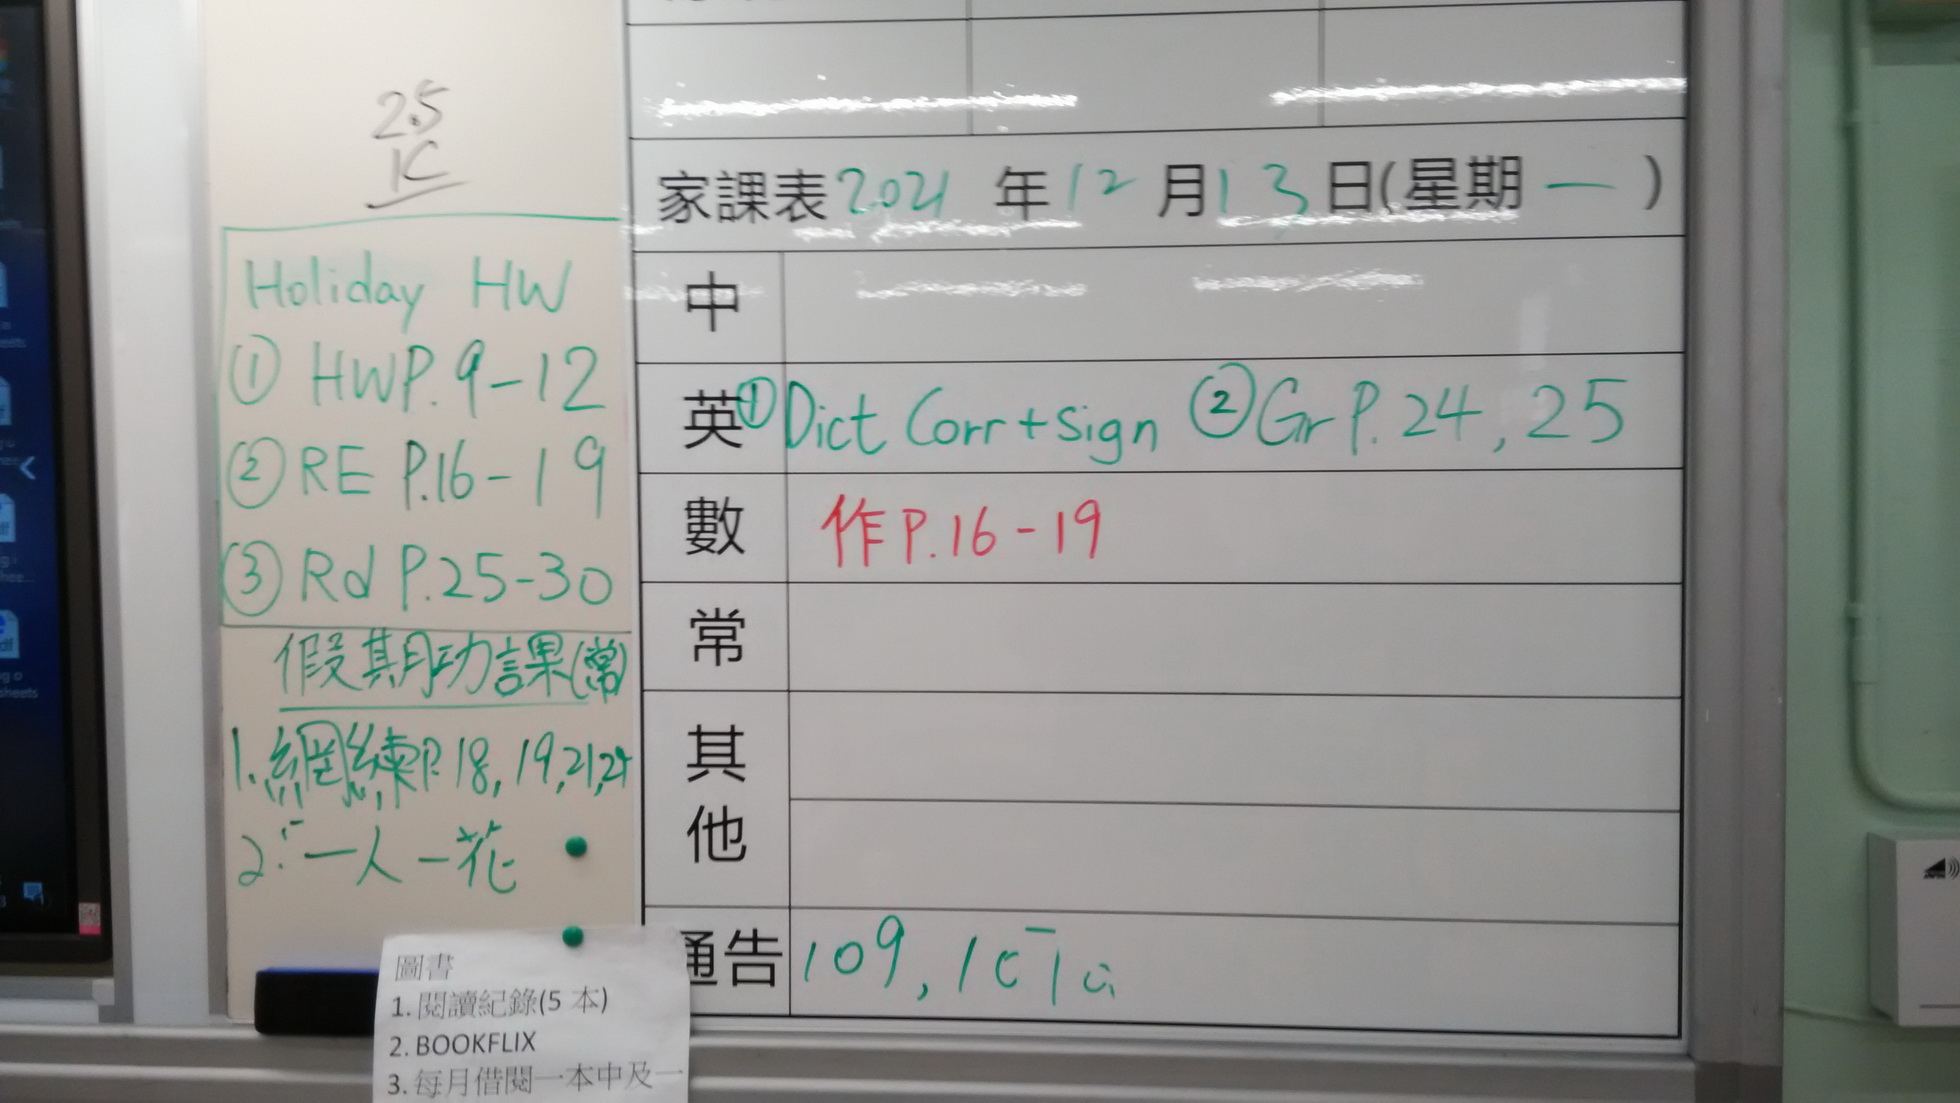 2.5
1C
Holiday HW
① HW P.9-12
② RE P.16-19
③ Rd P.25-30
假期功課(常)
1. 網練P. 18, 19, 21,
2. 一人一花
圖書
1. 閱讀紀錄(5 本)
2. BOOKFLIX
3. 每月借閱一本中及一
家課表 2021 年 12 月 13 日(星期 一 )
中
英 ① Dict Corr + sign ② Gr P. 24, 25
數 作 P. 16-19
常
其他
通告 109,